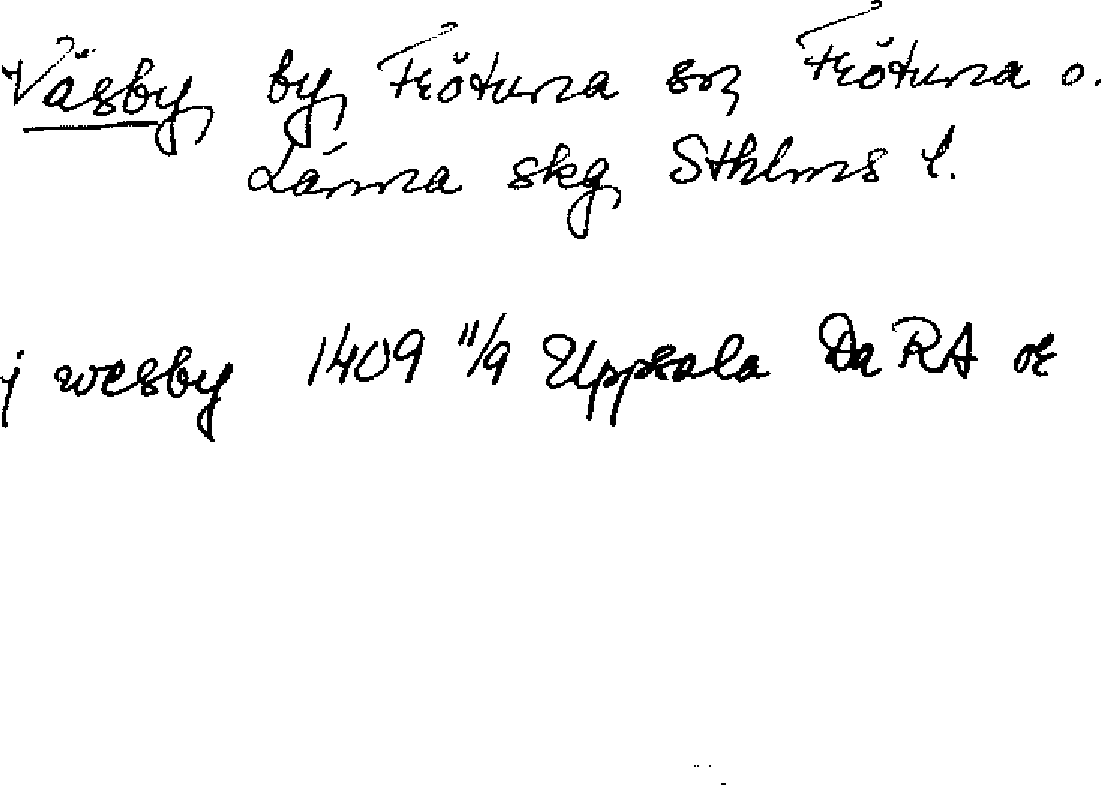 Väsby by, Frötuna sn, Frötuna o.
Länna skg, Sthlms l.
j wesby 1409 11/9 Uppsala Da RA or